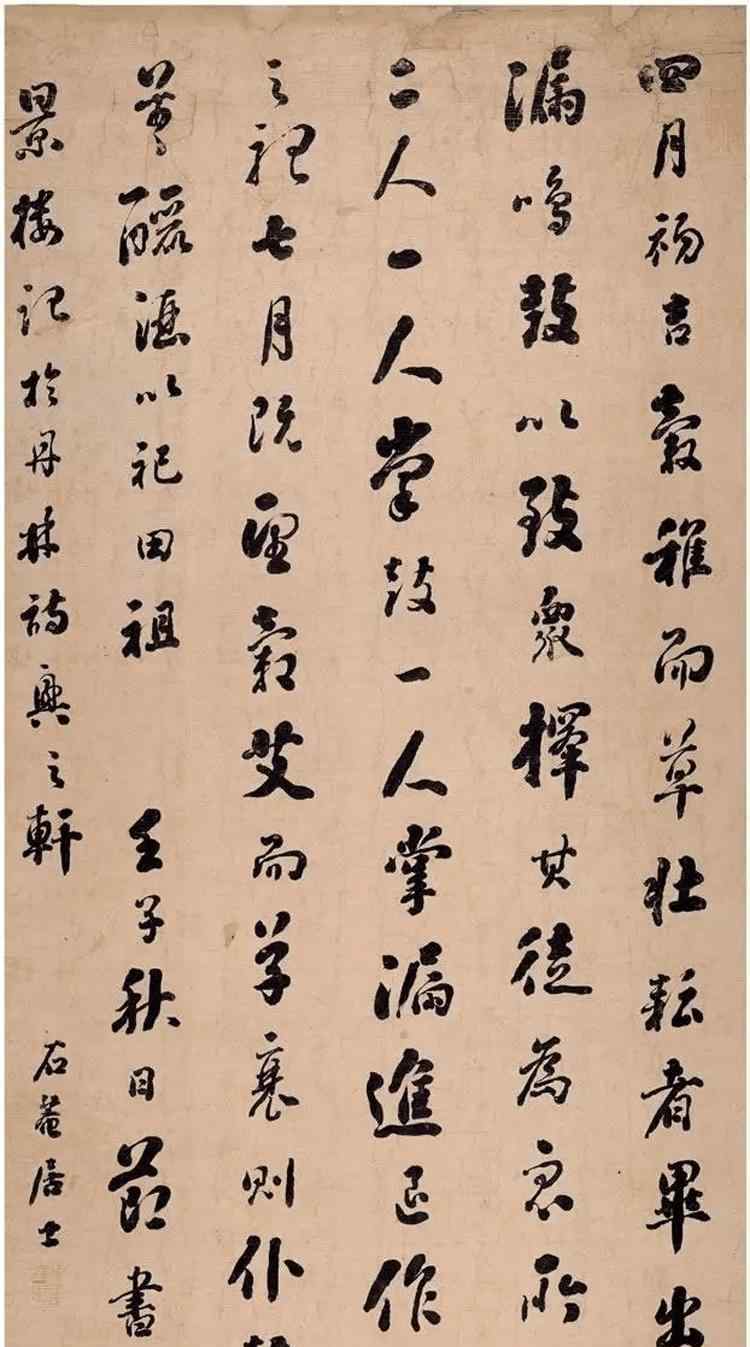 四月初吉穀稚而草壯耘者畢出
漏鳴鼓以致衆擇其徒為衆所
二人一人掌鼓一人掌漏進退作
之七月既望穀艾而草衰則仆
以祀田祖 壬子秋日節書
景樓記於丹林詩興之軒 石菴居士